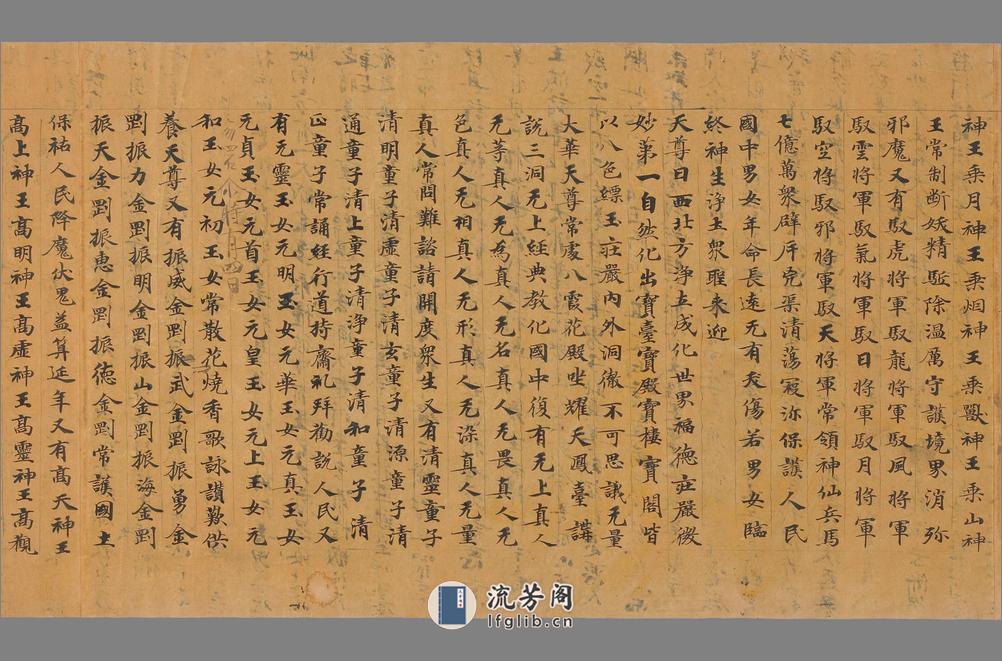 神王乗月神王乗烟神王乗獸神王乗山神
王常制断妖精駈除温厲守護境界消弥
邪魔又有馭虎将軍馭龍将軍馭風将軍
馭雲将軍馭氣将軍馭日将軍馭月将軍
馭空将馭邪将軍馭天将軍常領神仙兵馬
七億萬衆辟斥兇渠清蕩寇弥保護人民
國中男女年命長遠无有夭傷若男女臨
終神生浄土衆聖来迎
天尊曰西北方浄土成化世界福徳莊嚴微
妙第一自然化出寶臺寶殿寶樓寶閣皆
以八色縹玉莊嚴内外洞徹不可思議无量
大華天尊常處八霞花殿坐耀天鳳臺講
説三洞无上經典教化國中復有无上真人
无等真人无為真人无名真人无畏真人无
色真人无相真人无形真人无染真人无量
真人常問難諮請開度衆生又有清靈童子
清明童子清虚童子清玄童子清源童子清
通童子清上童子清浄童子清和童子清
正童子常誦經行道持齋礼拜勸説人民又
有元靈玉女元明玉女元華玉女元真玉女
元貞玉女元首玉女元皇玉女元上玉女元
和玉女元初玉女常散花燒香歌詠讃歎供
養天尊又有振威金剛振武金剛振勇金
剛振力金剛振明金剛振山金剛振海金剛
振天金剛振恵金剛振徳金剛常護國土
保祐人民降魔伏鬼益筭延年又有高天神王
高上神王高明神王高虚神王高靈神王高觀
流芳阁
lfglib.cn